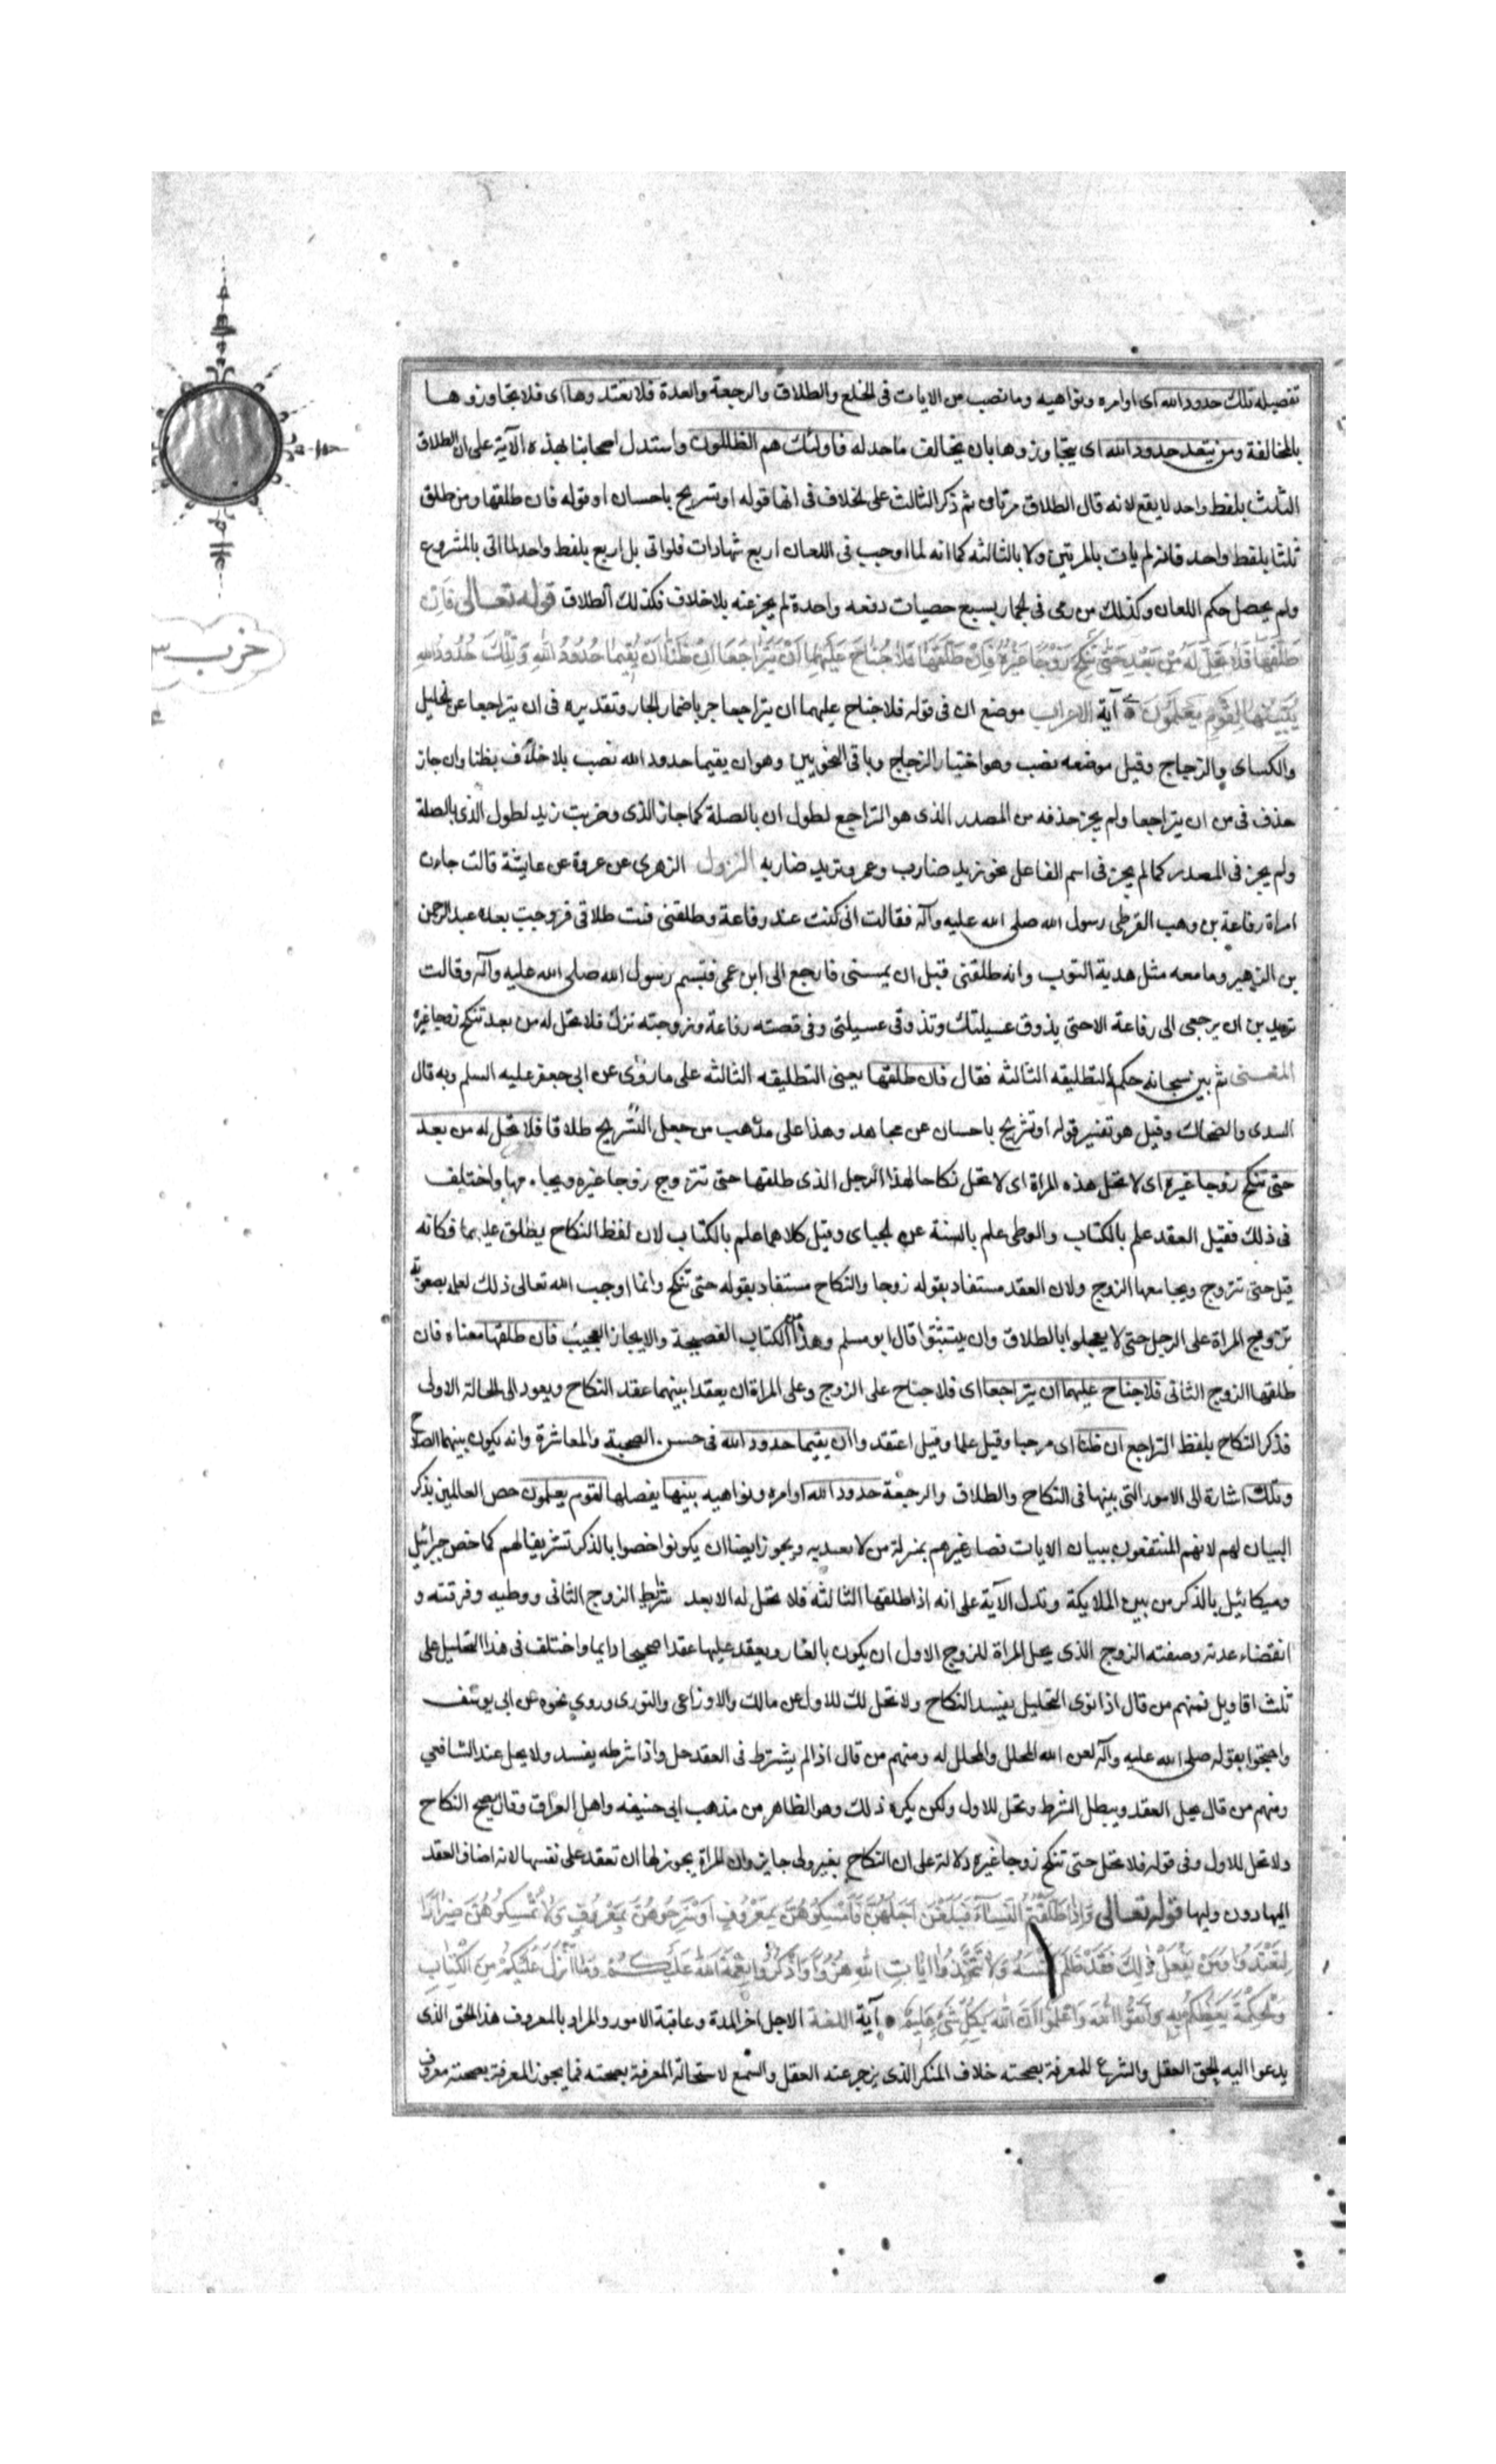 تفصيله تلك حدود الله اى اوامره ونواهيه وما نصب من الايات فى الخلع والطلاق والرجعة والعدة فلا تعتدوها اى فلا تجاوزوها
بالمخالفة ومن يتعد حدود الله اى يتجاوزوها بان يخالف ما حد له فاولئك هم الظالمون واستدل اصحابنا بهذه الآية على ان الطلاق
الثلث بلفظ واحد لا يقع لانه قال الطلاق مرتان ثم ذكر الثالث على الخلاف فى انها قوله او تسريح باحسان او قوله فان طلقها ومن طلق
ثلثا بلفظ واحد فانه لم يات بالمرتين ولا بالثالثه كما انه لما اوجب فى اللعان اربع شهادات فلو اتى بل اربع بلفظ واحد لما اتى بالمشروع
ولم يحصل حكم اللعان وكذلك من رمى فى الجمار بسبع حصيات دفعه واحدة لم يجز عنه بلا خلاف فكذلك الطلاق قوله تعالى فَاِنْ
طَلَّقَهَا فَلَا تَحِلُّ لَهُ مِنْ بَعْدُ حَتّٰى تَنْكِحَ زَوْجًا غَيْرَهُ فَاِنْ طَلَّقَهَا فَلَا جُنَاحَ عَلَيْهِمَا اَنْ يَتَرَاجَعَا اِنْ ظَنَّا اَنْ يُقِيمَا حُدُودَ اللهِ وَتِلْكَ حُدُودُ اللهِ
يُبَيِّنُهَا لِقَوْمٍ يَعْلَمُونَ آية الاعراب موضع ان فى قوله فلا جناح عليهما ان يتراجعا جر باضمار الجار وتقديره فى ان يتراجعا عن الخليل
والكساى والزجاج وقيل موضعه نصب وهو اختيار الزجاج وباقى النحويين وهو ان يقيما حدود الله نصب بلا خلاف بظنا وان جاز
حذف فى من ان يتراجعا ولم يجز حذفه من المصدر الذى هو التراجع لطول ان بالصلة كما جاز الذى وضربت زيد لطول الذى بالصلة
ولم يجز فى المصدر كما لم يجز فى اسم الفاعل نحو زيد ضارب وعمرو تريد ضاربه النزول الزهرى عن عروة عن عايشة قالت جاءت
امراة رفاعة بن وهب القرظى رسول الله صلى الله عليه وآله فقالت انى كنت عند رفاعة وطلقنى فبت طلاقى فزوجت بعده عبد الرحمن
بن الزهير وما معه مثل هدبة الثوب وانه طلقنى قبل ان يمسنى فارجع الى ابن عمى فتبسم رسول الله صلى الله عليه وآله وقالت
تريدين ان يرجعى الى رفاعة الا حتى يذوق عسيلتك وتذوقى عسيلتى وفى قصته رفاعة وزوجته نزل فلا تحل له من بعد تنكح زوجا غيره
المعنى ثم بين سبحانه حكم التطليقه الثالثه فقال فان طلقها يعنى التطليقه الثالثه على ما روى عن ابى جعفر عليه السلم وبه قال
السدى والضحاك وقيل هو تفسير قوله او تسريح باحسان عن مجاهد وهذا على مذهب من جعل التسريح طلاقا فلا تحل له من بعد
حتى تنكح زوجا غيره اى لا تحل هذه المراة اى لا تحل نكاحا لهذا الرجل الذى طلقها حتى تتزوج زوجا غيره ويجامعها واختلف
فى ذلك فقيل العقد علم بالكتاب والوطى علم بالسنة عن الجباى وقيل كلاهما علم بالكتاب لان لفظ النكاح يطلق عليهما فكانه
قيل حتى تتزوج ويجامعها الزوج ولان العقد مستفاد بقوله زوجا والنكاح مستفاد بقوله حتى تنكح وانما اوجب الله تعالى ذلك لعلمه بصعوبة
تزويج المراة على الرجل حتى لا يعجلوا بالطلاق وان يتثبتوا قال ابو مسلم وهذا من الكتاب الفصيحة والايجاز العجيب فان طلقها معناه فان
طلقها الزوج الثانى فلا جناح عليهما ان يتراجعا اى فلا جناح على الزوج وعلى المراة ان يعقدا بينهما عقد النكاح ويعود الى الحالة الاولى
فذكر النكاح بلفظ التراجع ان ظنا اى مرجيا وقيل علما وقيل اعتقدوا ان يقيما حدود الله فى حسن الصحبة والمعاشرة وانه يكون بينهما الصلاح
وتلك اشارة الى الامور التى بينها فى النكاح والطلاق والرجعة حدود الله اوامره ونواهيه يبينها يفصلها لقوم يعلمون خص العالمين بذكر
البيان لهم لانهم المنتفعون ببيان الايات فصار غيرهم بمنزلة من لا يعتد به ويجوز ايضا ان يكونوا خصوا بالذكر تشريفا لهم كما خص جبرائيل
وميكائيل بالذكر من بين الملايكة وتدل الآية على انه اذا طلقها الثالثه فلا تحل له الا بعد شرايط الزوج الثانى ووطيه وفرقته و
انقضاء عدته وصفته الزوج الذى يحل المراة للزوج الاول ان يكون بالغا ويعقد عليها عقدا صحيحا دايما واختلف فى هذا التحليل على
ثلث اقاويل فمنهم من قال اذا نوى التحليل يفسد النكاح ولا تحل لك للاول عن مالك والاوزاعى والثورى وروى نحوه عن ابى يوسف
واحتجوا بقوله صلى الله عليه وآله لعن الله المحلل والمحلل له ومنهم من قال اذا لم يشترط فى العقد حل واذا شرطه يفسد ولا يحل عند الشافعي
ومنهم من قال يحل العقد ويبطل الشرط وتحل للاول ولكن يكره ذلك وهو الظاهر من مذهب ابى حنيفه واهل العراق وقال يصح النكاح
ولا تحل للاول وفى قوله فلا تحل حتى تنكح زوجا غيره دلالة على ان النكاح بغير ولى جايز وان المراة يجوز لها ان تعقد على نفسها لانه اضاف العقد
اليها دون وليها قوله تعالى وَاِذَا طَلَّقْتُمُ النِّسَآءَ فَبَلَغْنَ اَجَلَهُنَّ فَاَمْسِكُوهُنَّ بِمَعْرُوفٍ اَوْ سَرِّحُوهُنَّ بِمَعْرُوفٍ وَلَا تُمْسِكُوهُنَّ ضِرَارًا
لِتَعْتَدُوا وَمَنْ يَفْعَلْ ذٰلِكَ فَقَدْ ظَلَمَ نَفْسَهُ وَلَا تَتَّخِذُوا اٰيَاتِ اللهِ هُزُوًا وَاذْكُرُوا نِعْمَةَ اللهِ عَلَيْكُمْ وَمَا اَنْزَلَ عَلَيْكُمْ مِنَ الْكِتَابِ
وَالْحِكْمَةِ يَعِظُكُمْ بِهِ وَاتَّقُوا اللهَ وَاعْلَمُوا اَنَّ اللهَ بِكُلِّ شَىْءٍ عَلِيمٌ آية اللغة الاجل اخر المدة وعاقبة الامور والمراد بالمعروف هذا الحق الذى
يدعوا اليه الحق العقل والشرع للمعرفة بصحته خلاف المنكر الذى يزجر عنه العقل والسمع لاستحالة المعرفة بصحته فما يجوز المعرفة بصحته معروف
حزب